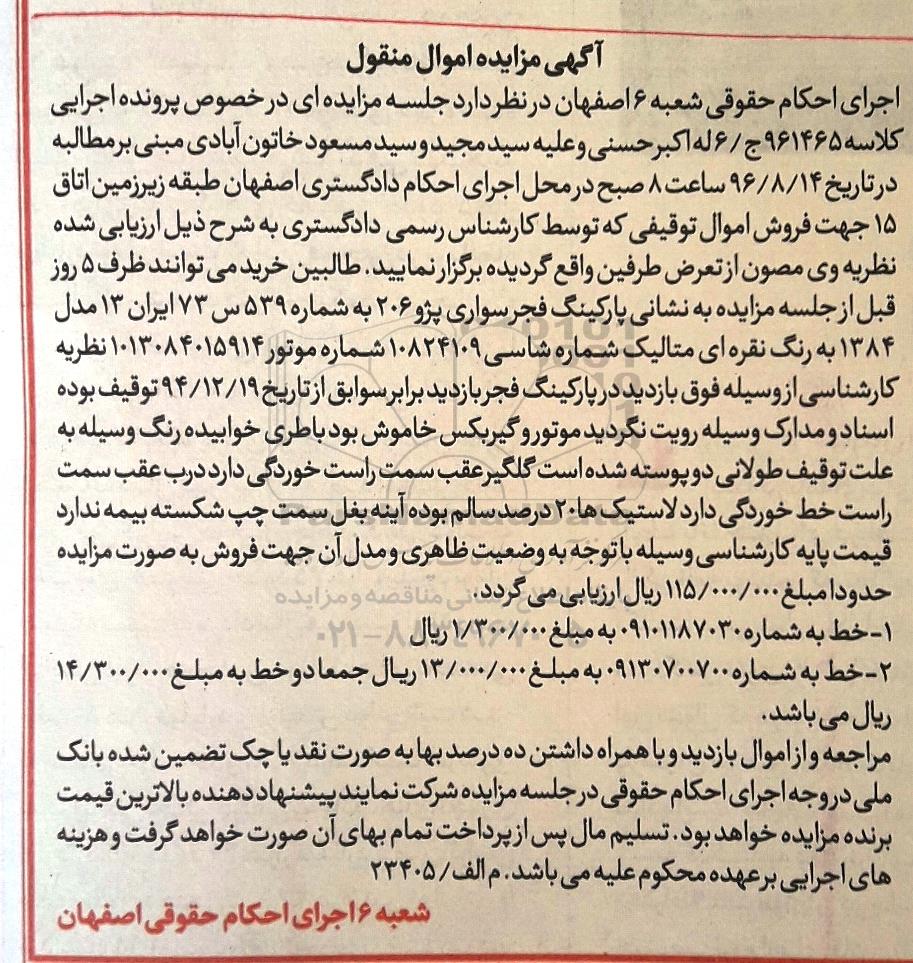 آگهی مزایده اموال منقول
اجرای احکام حقوقی شعبه ۶ اصفهان در نظر دارد جلسه مزایده ای در خصوص پرونده اجرایی
کلاسه ۹۶۱۴۶۵ج/۶ له اکبر حسنی و علیه سید مجید و سید مسعود خاتون آبادی مبنی بر مطالبه
در تاریخ ۹۶/۸/۱۴ ساعت ۸ صبح در محل اجرای احکام دادگستری اصفهان طبقه زیرزمین اتاق
۱۵ جهت فروش اموال توقیفی که توسط کارشناس رسمی دادگستری به شرح ذیل ارزیابی شده
نظریه وی مصون از تعرض طرفین واقع گردیده برگزار نمایید. طالبین خرید می توانند ظرف ۵ روز
قبل از جلسه مزایده به نشانی پارکینگ فجر سواری پژو ۲۰۶ به شماره ۵۳۹ س ۷۳ ایران ۱۳ مدل
۱۳۸۴ به رنگ نقره ای متالیک شماره شاسی ۱۰۸۲۴۱۰۹ شماره موتور ۱۰۱۳۰۸۴۰۱۵۹۱۴ نظریه
کارشناسی از وسیله فوق بازدید در پارکینگ فجر بازدید برابر سوابق از تاریخ ۹۴/۱۲/۱۹ توقیف بوده
اسناد و مدارک وسیله رویت نگردید موتور و گیربکس خاموش بود باطری خوابیده رنگ وسیله به
علت توقیف طولانی دو پوسته شده است گلگیر عقب سمت راست خوردگی دارد درب عقب سمت
راست خط خوردگی دارد لاستیک ها ۲۰ درصد سالم بوده آینه بغل سمت چپ شکسته بیمه ندارد
قیمت پایه کارشناسی وسیله با توجه به وضعیت ظاهری و مدل آن جهت فروش به صورت مزایده
حدودا مبلغ ۱۱۵/۰۰۰/۰۰۰ ریال ارزیابی می گردد.
۱-خط به شماره ۰۹۱۰۱۱۸۷۰۳۰ به مبلغ ۱/۳۰۰/۰۰۰ ریال
۲-خط به شماره ۰۹۱۳۰۷۰۰۷۰۰ به مبلغ ۱۳/۰۰۰/۰۰۰ ریال جمعا دو خط به مبلغ ۱۴/۳۰۰/۰۰۰
ریال می باشد.
مراجعه و از اموال بازدید و با همراه داشتن ده درصد بها به صورت نقد یا چک تضمین شده بانک
ملی در وجه اجرای احکام حقوقی در جلسه مزایده شرکت نمایند پیشنهاد دهنده بالاترین قیمت
برنده مزایده خواهد بود. تسلیم مال پس از پرداخت تمام بهای آن صورت خواهد گرفت و هزینه
های اجرایی بر عهده محکوم علیه می باشد. م الف/ ۲۳۴۰۵
شعبه ۶ اجرای احکام حقوقی اصفهان